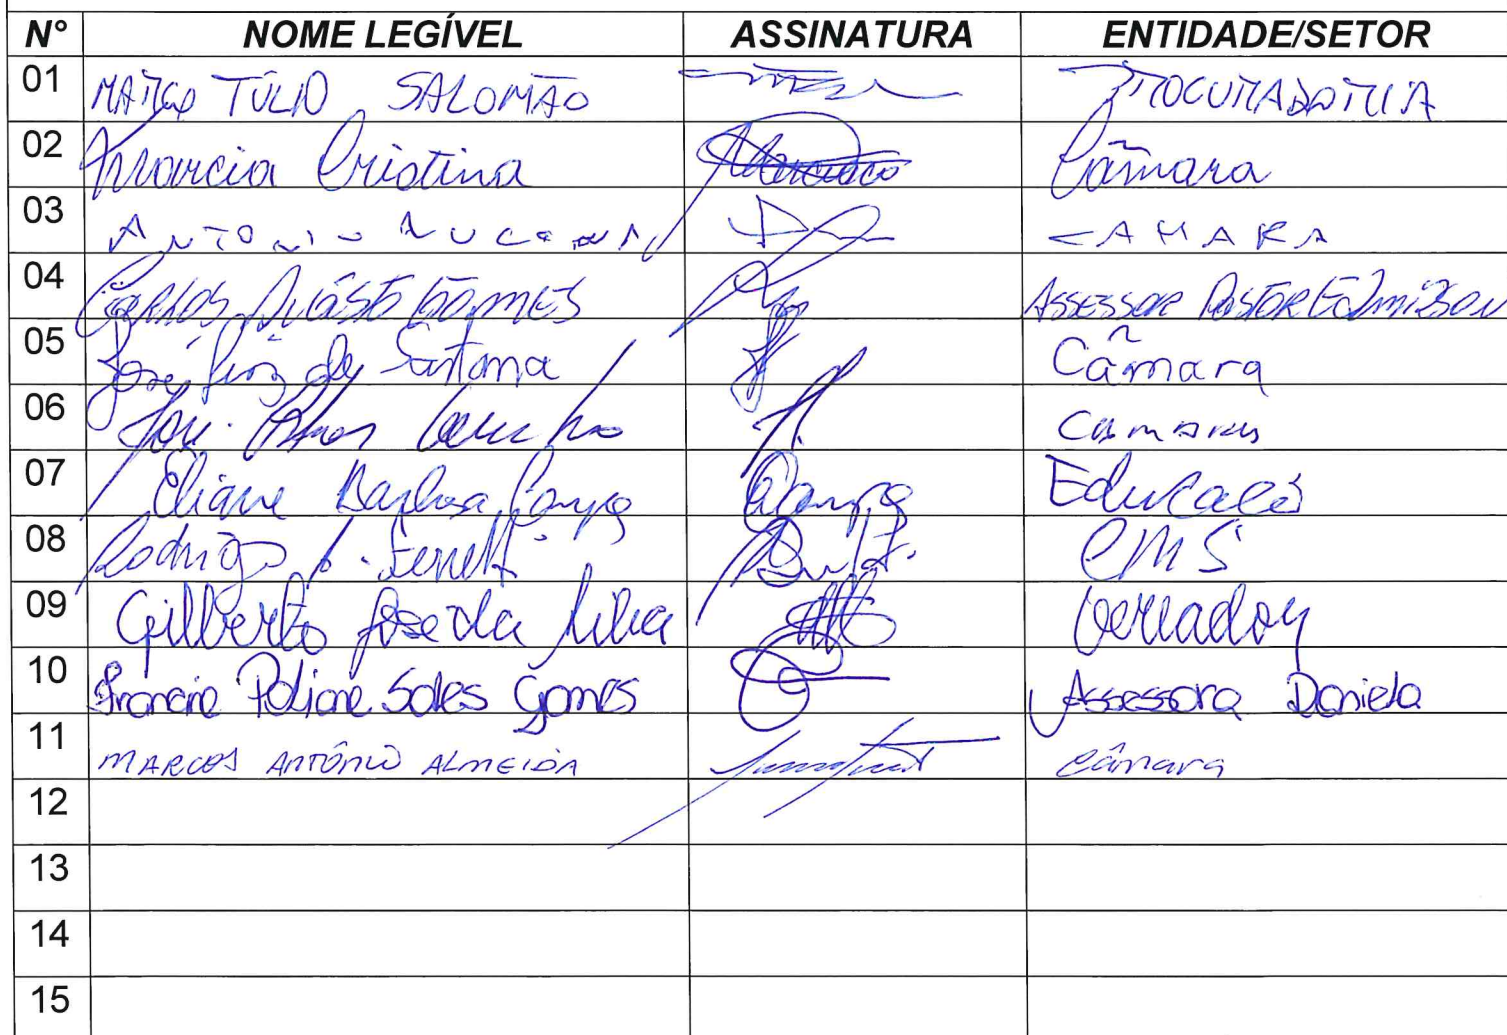 N° NOME LEGÍVEL ASSINATURA ENTIDADE/SETOR
01 MARCO TÚLIO SALOMÃO PROCURADORIA
02 Marcia Cristina Câmara
03 ANTONIO CAMARA
04 CARLOS GOMES ASSESSOR PASTOR EDmilSON
05 José Luiz de Santana Câmara
06 José Camara
07 Eliane Barbosa Educacaó
08 Rodrigo CMS
09 Gilberto José da Silva Vereador
10 Francine Poliane Sales Gomes Assessora Daniela
11 MARCOS ANTÔNIO ALMEIDA Câmara
12
13
14
15